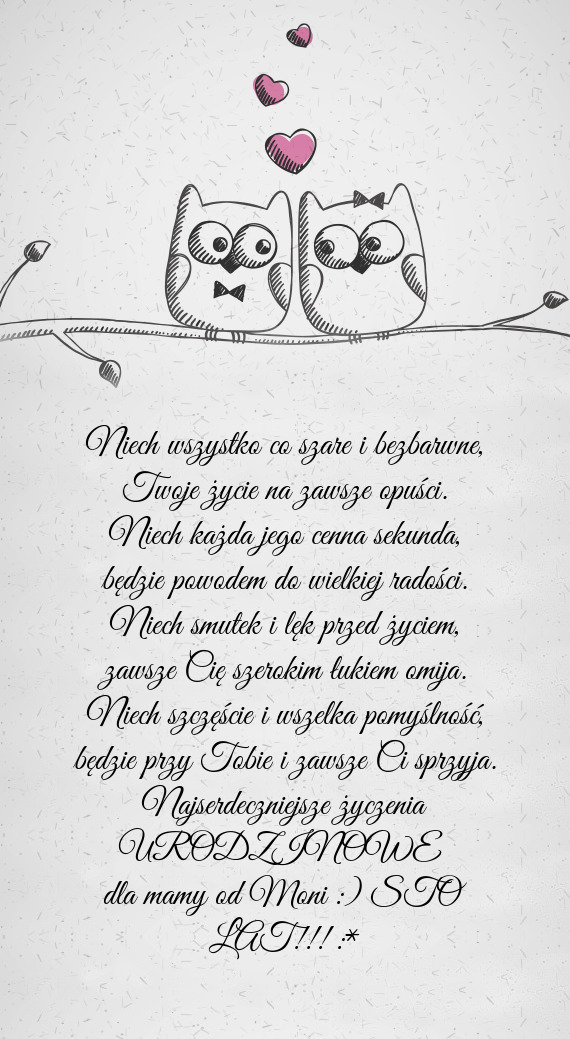 Niech wszystko co szare i bezbarwne,
Twoje życie na zawsze opuści.
Niech każda jego cenna sekunda,
będzie powodem do wielkiej radości.
Niech smutek i lęk przed życiem,
zawsze Cię szerokim łukiem omija.
Niech szczęście i wszelka pomyślność,
będzie przy Tobie i zawsze Ci sprzyja.
Najserdeczniejsze życzenia
URODZINOWE
dla mamy od Moni :) STO
LAT!!! :*